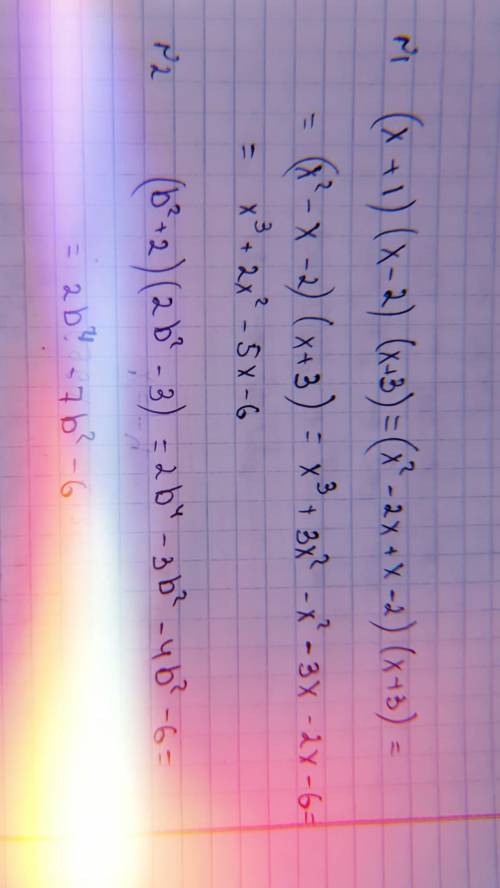 №1 (x + 1) (x - 2) (x+3) = (x² - 2x + x - 2) (x+3) =
= (x² - x - 2) (x+3) = x³ + 3x² - x² - 3x - 2x - 6 =
= x³ + 2x² - 5x - 6
№2 (b² + 2) (2b² - 3) = 2b⁴ - 3b² - 4b² - 6 =
= 2b⁴ - 7b² - 6